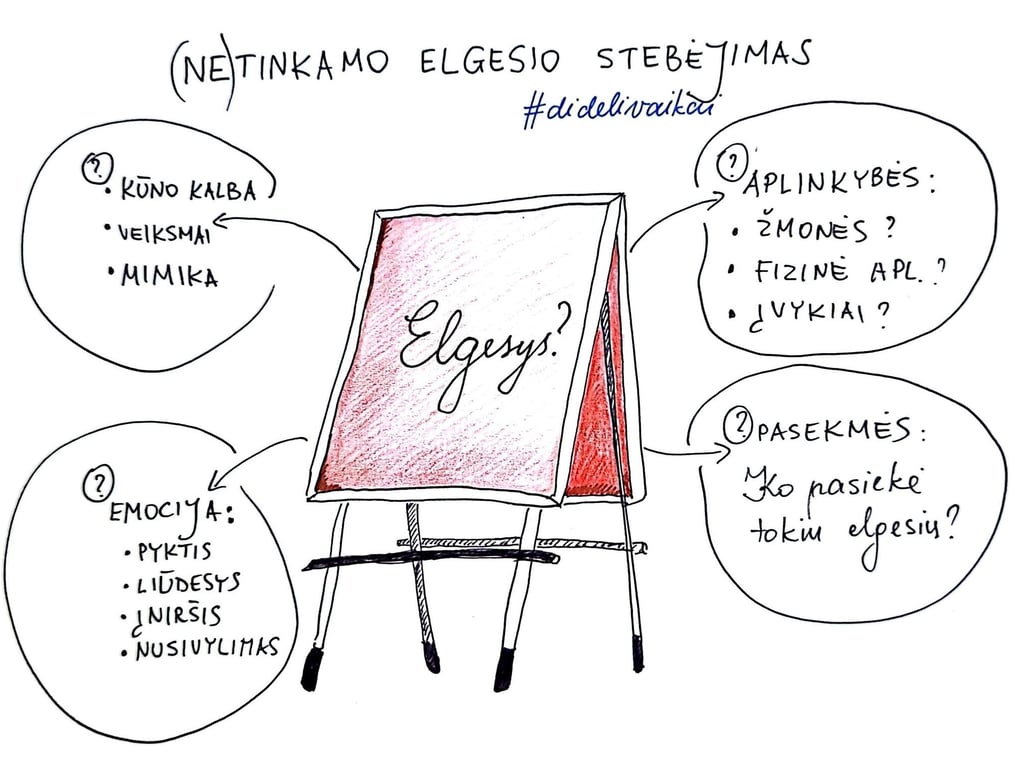 (NE)TINKAMO ELGESIO STEBĖJIMAS
#didelivaikai
?
• KŪNO KALBA
• VEIKSMAI
• MIMIKA
Elgesys?
?
APLINKYBĖS:
• ŽMONĖS?
• FIZINĖ APL.?
• ĮVYKIAI?
?
EMOCIJA:
• PYKTIS
• LIŪDESYS
• ĮNIRŠIS
• NUSIVYLIMAS
?
PASEKMĖS:
Ko pasiekė
tokiu elgesiu?